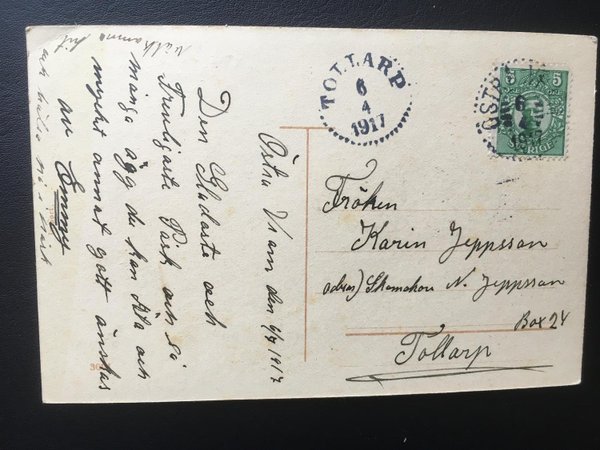 TOLLARP
6
4
1917
ÖSTRA
5
6
SVERIGE
Fröken
Karin Jeppsson
adress) Skomakare N. Jeppsson
Box 24
Tollarp
Östra Vram den 6/4 1917
Den Gladaste och
Trevligaste Påsk och så
många ägg du kan äta och
mycket annat gott önskas
av Emmy
välkomma hit
och
30